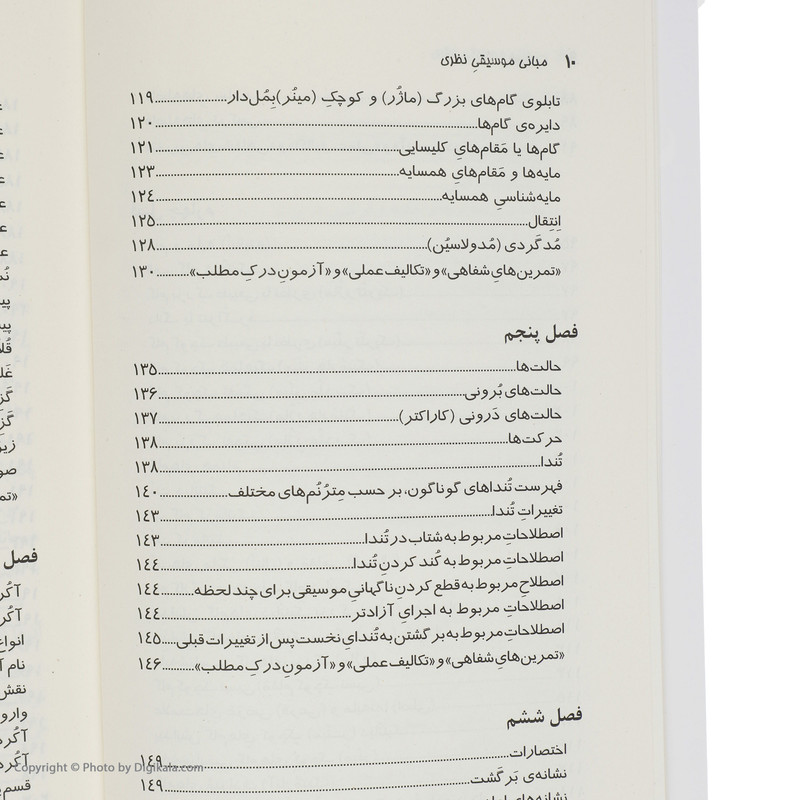 ۱۰ مبانی موسیقیِ نظری
تابلوی گام‌های بزرگ (ماژُر) و کوچکِ (مینُر)بِمُل‌دار......................۱۱۹
دایره‌ی گام‌ها......................۱۲۰
گام‌ها یا مَقام‌هایِ کلیسایی......................۱۲۱
مایه‌ها و مَقام‌هایِ همسایه......................۱۲۳
مایه‌شناسیِ همسایه......................۱۲٤
اِنتِقال......................۱۲۵
مُدگَردی (مُدولاسیُن)......................۱۲۸
«تمرین‌هایِ شفاهی» و «تکالیف عملی» و «آزمونِ درکِ مطلب»..........۱۳۰
فصل پنجم
حالت‌ها......................۱۳۵
حالت‌های بُرونی......................۱۳۶
حالت‌های دَرونی (کاراکتر)......................۱۳۷
حرکت‌ها......................۱۳۸
تُندا......................۱۳۸
فهرست تُنداهای گوناگون، بر حسب مِترُنُم‌های مختلف......................۱٤۰
تغییراتِ تُندا......................۱٤۳
اصطلاحاتِ مربوط به شتاب در تُندا......................۱٤۳
اصطلاحاتِ مربوط به کُند کردنِ تُندا......................۱٤٤
اصطلاحِ مربوط به قطع کردنِ ناگهانیِ موسیقی برای چند لحظه..........۱٤٤
اصطلاحاتِ مربوط به اجرایِ آزادتر......................۱٤٤
اصطلاحاتِ مربوط به برگشتن به تُندایِ نخست پس از تغییرات قبلی.....۱٤۵
«تمرین‌هایِ شفاهی» و «تکالیف عملی» و «آزمونِ درکِ مطلب»..........۱٤۶
فصل ششم
اختصارات......................۱٤۹
نشانه‌ی بَرگَشت......................۱٤۹
فصل
انواع
نام آ
نقش
Copyright © Photo by Digikala.com